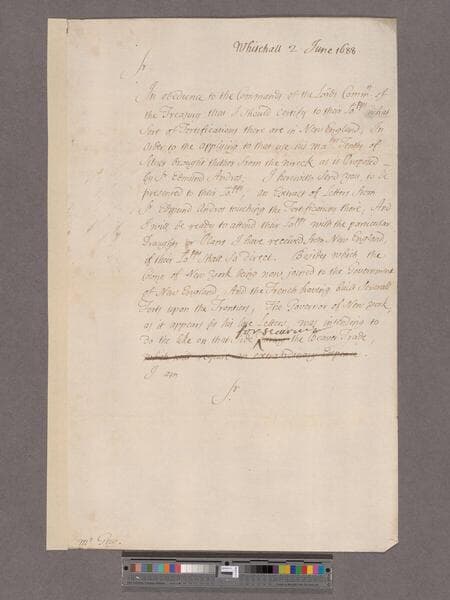 Whitehall 2 June 1688
Sr.
In obedience to the Commands of the Lords Commrs. of
the Treasury that I should certify to their Lopps. what
Sort of Fortifications there are in New England, In
order to the applying to that use his mats. Tenths of
Silver brought thither from the wreck as is Proposed
by Sr. Edmund Andros. I herewith Send you to be
presented to their Lopps. an Extract of Letters from
Sr. Edmund Andros touching the Fortifications there. And
I will be ready to attend their Lopps. with the particular
Draughts or Plans I have received from New England,
if their Lopps. Shall So direct. Besides which the
Colony of New York being now joined to the Government
of New England, And the French having built Severall
Forts upon the Frontiers, The Governor of New York,
as it appears by his Letters, was intending to
do the like on that side for securing the Beaver Trade,
which will require an extraordinary Expence.
I am
Sr.
Mr. Guy.